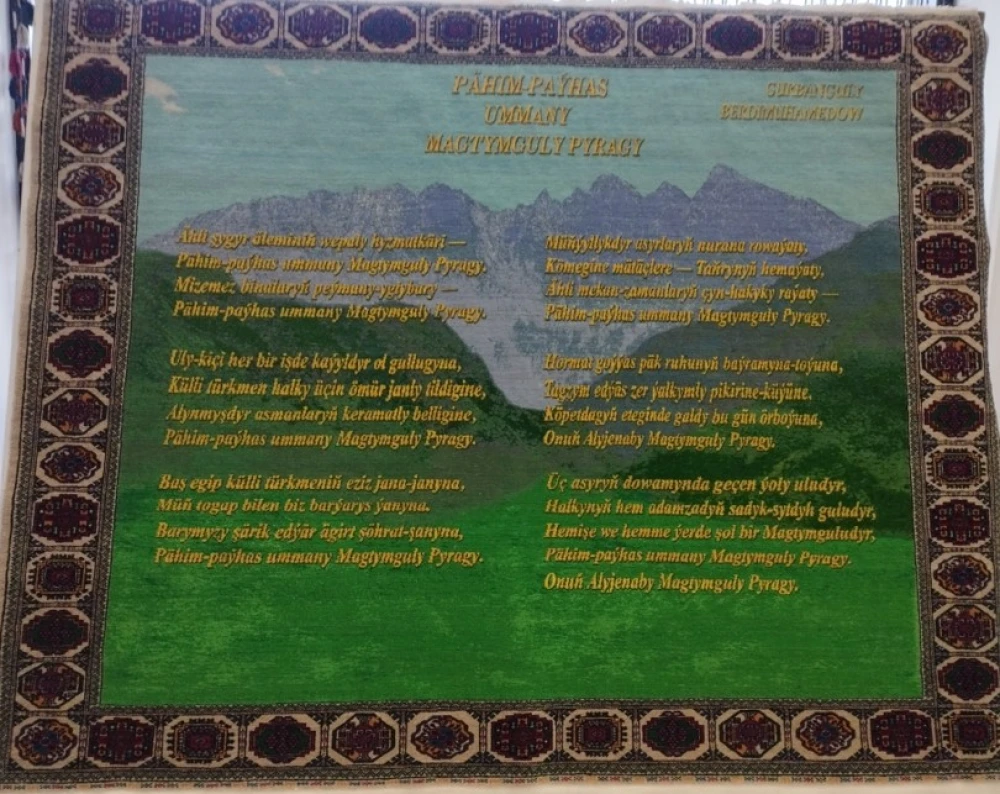 PÄHIM-PAÝHAS
UMMANY
MAGTYMGULY PYRAGY
GURBANGULY
BERDIMUHAMEDOW
Ähli şygyr äleminiň wepaly hyzmatkäri —
Pähim-paýhas ummany Magtymguly Pyragy.
Mizemez binalaryň peýmany-ygtybary —
Pähim-paýhas ummany Magtymguly Pyragy.
Uly-kiçi her bir işde kaýyldyr ol gullugyna,
Külli türkmen halky üçin ömür janly tildigine,
Alynmyşdyr asmanlaryň keramatly belligine,
Pähim-paýhas ummany Magtymguly Pyragy.
Baş egip külli türkmeniň eziz jana-janyna,
Müň togap bilen biz barýarys ýanyna.
Barymyzy şärik edýär ägirt şöhrat-şanyna,
Pähim-paýhas ummany Magtymguly Pyragy.
Müňýyllykdyr asyrlaryň nurana rowaýaty,
Kömegine mätäçlere — Taňrynyň hemaýaty,
Ähli mekan-zamanlaryň çyn-hakyky raýaty —
Pähim-paýhas ummany Magtymguly Pyragy.
Hormat goýýas päk ruhunyň baýramyna-toýuna,
Tagzym edýäs zer ýalkymly pikirine-küýüne.
Köpetdagyň eteginde galdy bu gün örboýuna,
Onuň Alyjenaby Magtymguly Pyragy.
Üç asyryň dowamynda geçen ýoly uludyr,
Halkynyň hem adamzadyň sadyk-sydyh guludyr,
Hemişe we hemme ýerde şol bir Magtymguludyr,
Pähim-paýhas ummany Magtymguly Pyragy.
Onuň Alyjenaby Magtymguly Pyragy.